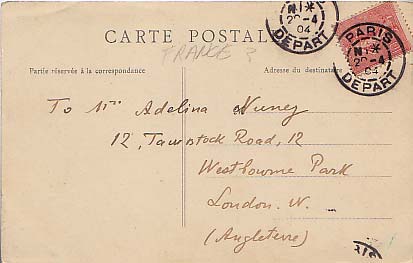 CARTE POSTALE
FRANCE ?
Partie réservée à la correspondance
Adresse du destinataire
N1*
20-4
04
DEPART
PARIS
N1*
20-4
04
DEPART
To Mrs Adelina Nunez
12, Tavistock Road, 12
Westbourne Park
London. W.
(Angleterre)